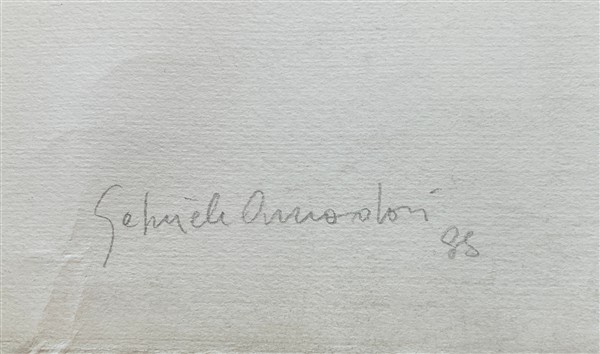 Gabriele Amadori
88